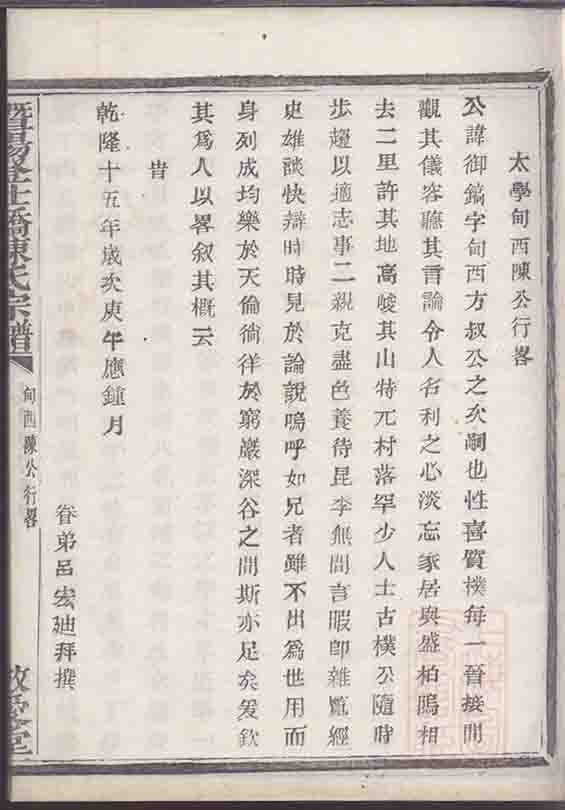 太學甸西陳公行畧
公諱御鎬字甸西方叔公之次嗣也性喜質樸每一晉接間
觀其儀容聽其言論令人名利之心淡忘家居與盛柏隝相
去二里許其地高峻其山特兀村落罕少人士古樸公隨時
步趨以適志事二親克盡色養待昆季無間言暇卽雜覽經
史雄談快辯時時見於論說嗚呼如兄者雖不出爲世用而
身列成均樂於天倫徜徉於窮巖深谷之間斯亦足矣爰欽
其爲人以畧叙其概云
旹
乾隆十五年歲次庚午應鍾月
眷弟呂宏廸拜撰
暨陽
橋陳氏宗譜
甸西陳公行畧
敬愛堂